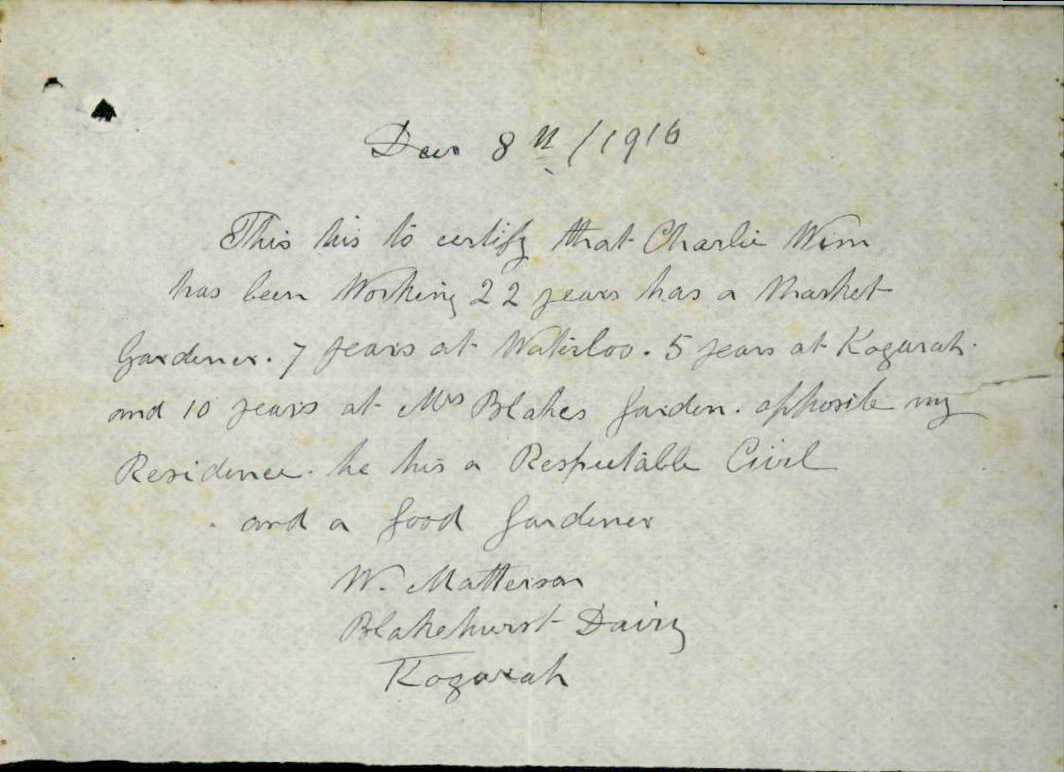 Dec 8th/1916
This his to certify that Charlie Wim
has been Working 22 years has a Market
Gardener. 7 years at Waterloo. 5 years at Kogarah.
and 10 years at Mrs Blakes Garden. opposite my
Residence. he his a Respectable Civil
and a good Gardener
W. Matterson
Blakehurst Dairy
Kogarah